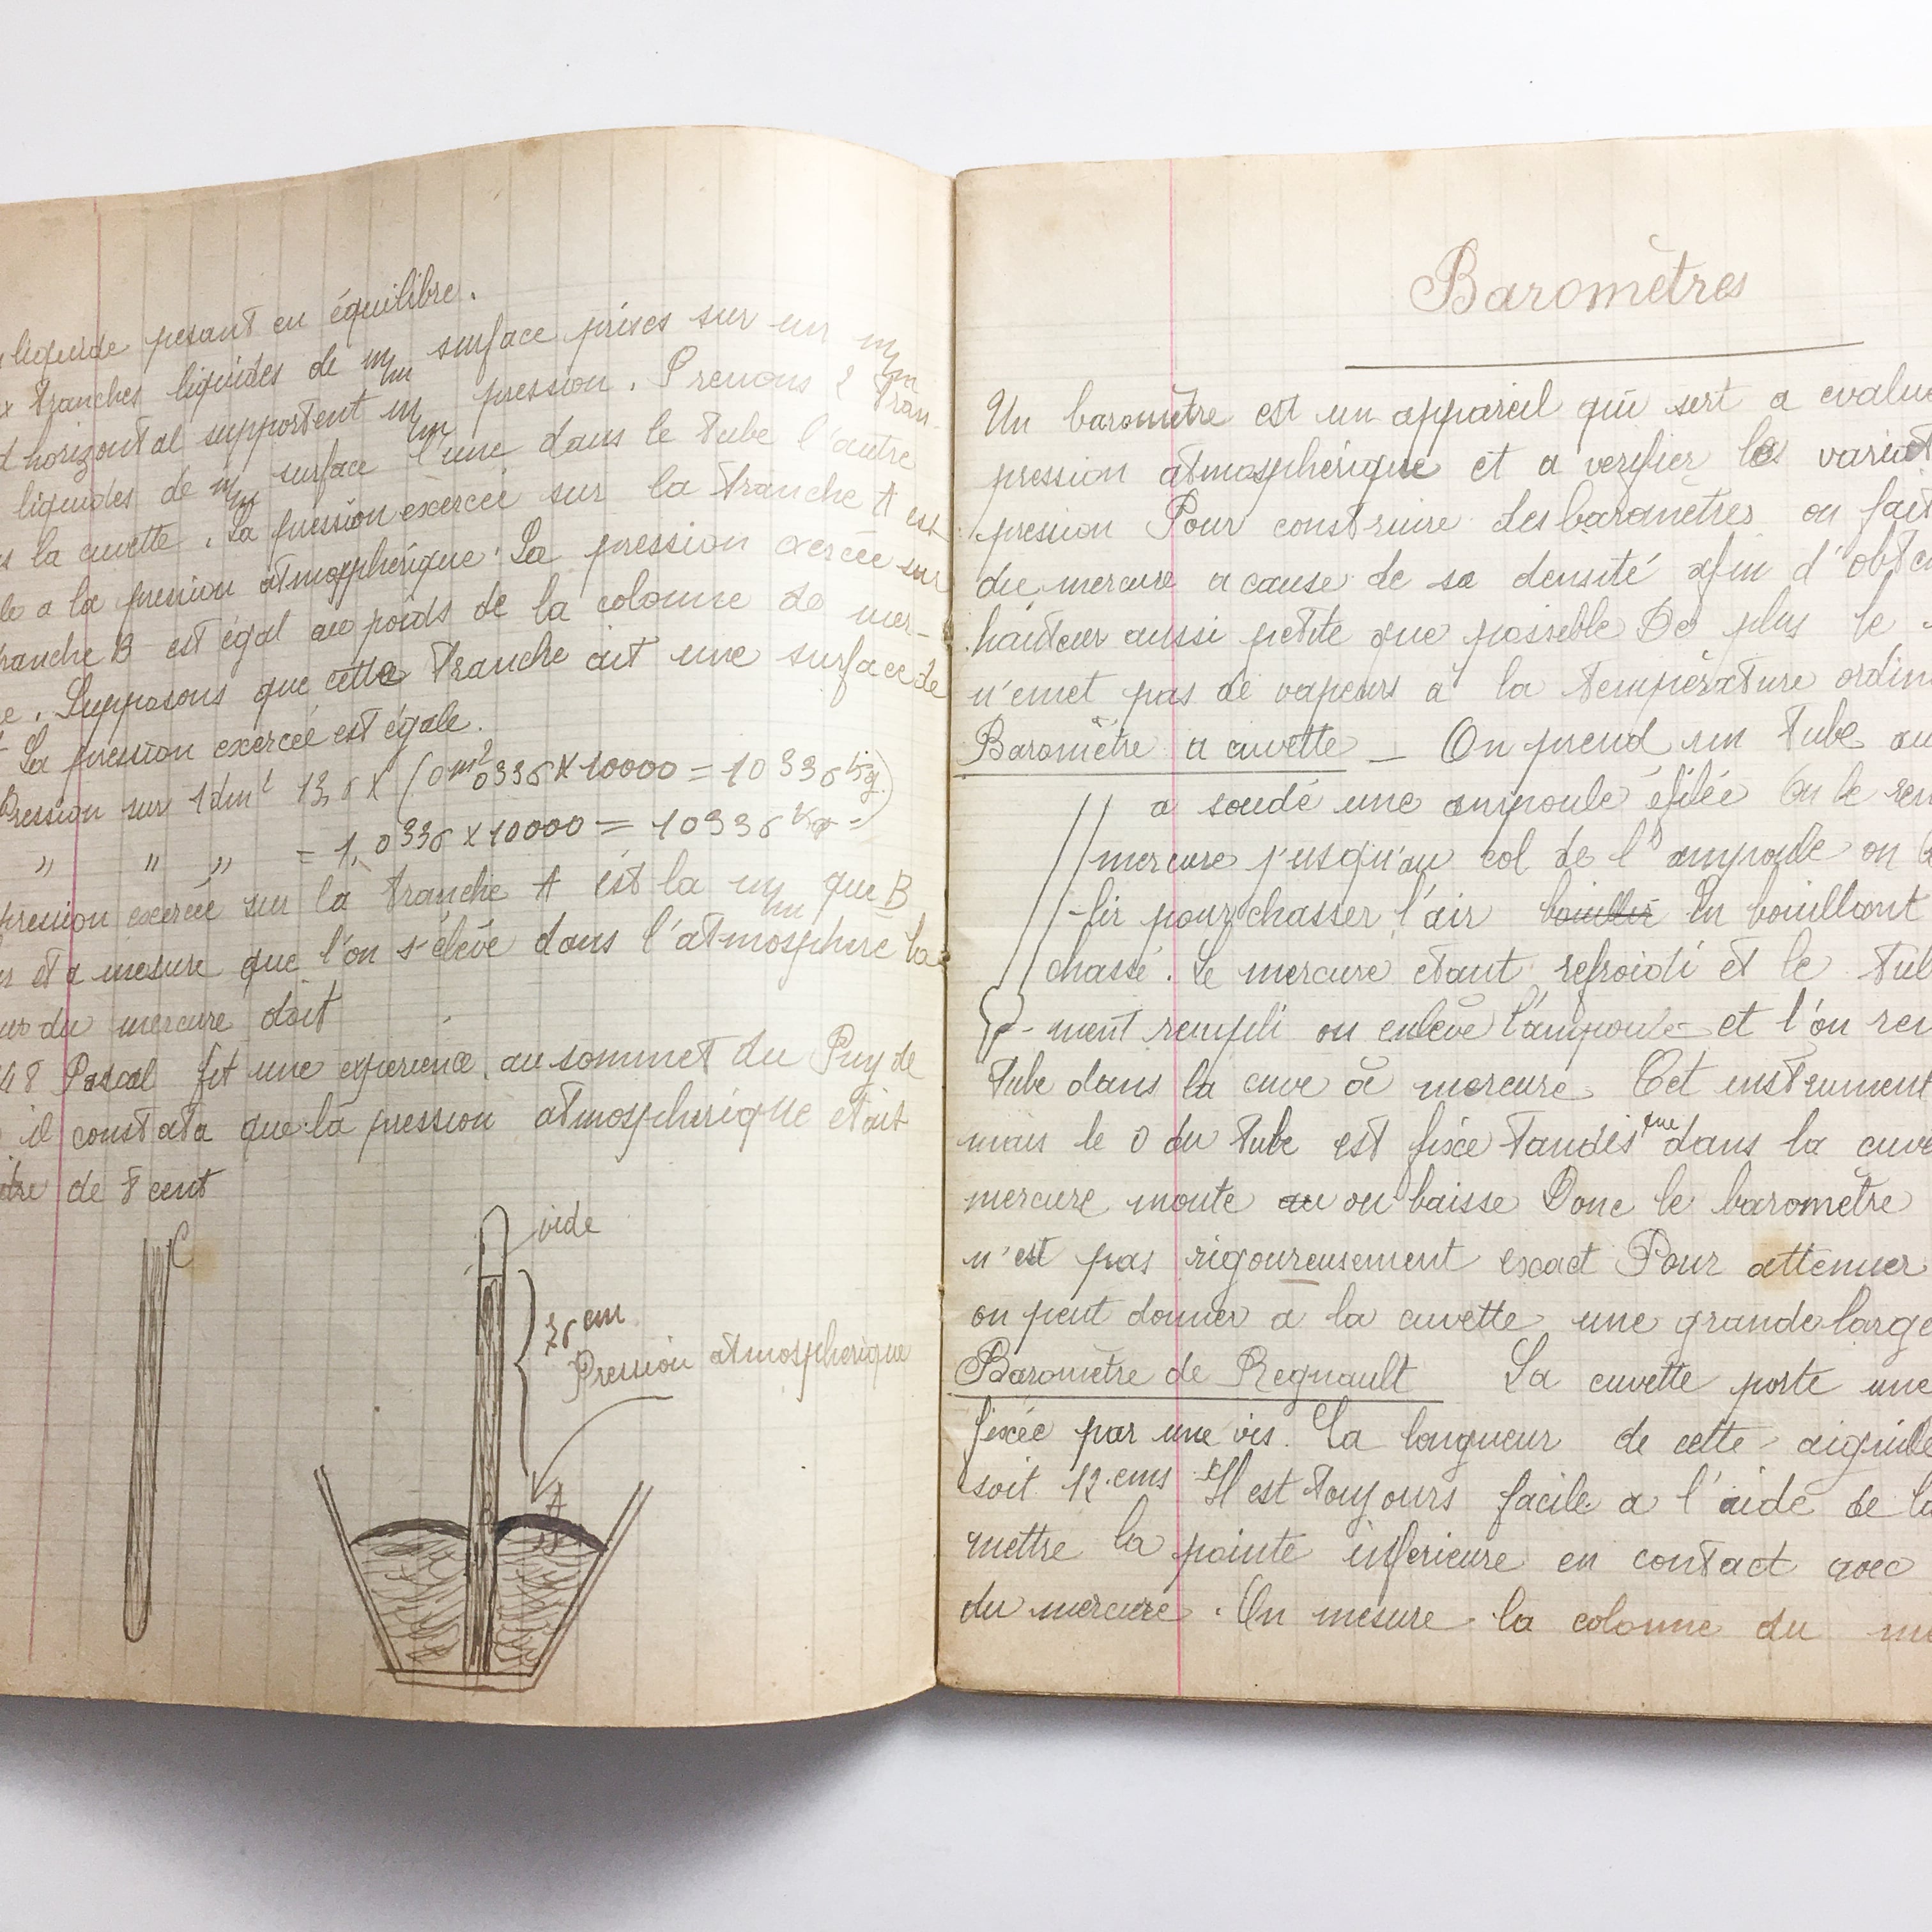 liquide pesant en équilibre.
tranches liquides de m/m surface prises sur un m/m
horizontal supportent m/m pression. Prenons 2 tran-
liquides de m/m surface l'une dans le tube l'autre
la cuvette. La pression exercée sur la tranche A est
a la pression atmosphérique. La pression exercée sur
tranche B est égal au poids de la colonne de mer-
e. Supposons que cette tranche ait une surface de
La pression exercée est égale.
Pression sur 1dm² 13,6 x (0m²0336 x 10000 = 10336 Kg.)
" " " = 1,0336 x 10000 = 10336 Kg
pression exercée sur la tranche A est la m/m que B
et a mesure que l'on s'élève dans l'atmosphere la
du mercure doit
48 Pascal fit une experience au sommet du Puy de
il constata que la pression atmospherique etait
de 8 cent
C
vide
76 cm
Pression atmospherique
B
A
Baromètres
Un baromètre est un appareil qui sert a evalue
pression atmosphérique et a verifier les variat
pression Pour construire des baromètres on fait
du mercure a cause de sa densité afin d'obte
hauteur aussi petite que possible De plus le
n'emet pas de vapeurs a la température ordin
Baromètre a cuvette _ On prend un tube au
a soudé une ampoule éfilée On le rem
mercure jusqu'au col de l'ampoule on
-lir pour chasser l'air bouillir En bouillant
chassé. Le mercure etant refroidi et le tub
-ment rempli on enlève l'ampoule et l'on ren
tube dans la cuve à mercure. Cet instrument
mais le 0 du tube est fixée tandis que dans la cuve
mercure monte au ou baisse Donc le baromètre
n'est pas rigoureusement exact Pour attenuer
on peut donner a la cuvette une grande large
Baromètre de Regnault La cuvette porte une
fixée par une vis. La longueur de cette aiguille
soit 12 cms Il est toujours facile a l'aide de la
mettre la pointe inferieure en contact avec
du mercure. On mesure la colonne du